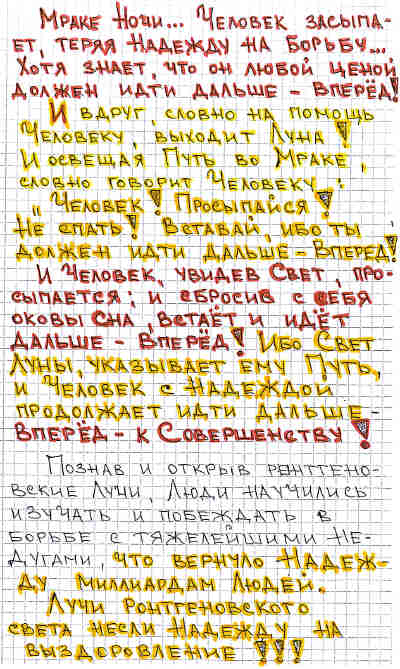 Мраке Ночи... Человек засыпа-
ет, теряя Надежду на Борьбу...
Хотя знает, что он любой ценой
должен идти дальше – Вперёд!
И вдруг, словно на помощь
Человеку, выходит Луна!
И освещая Путь во Мраке,
словно говорит Человеку:
„Человек! Просыпайся!
Не спать! Вставай, ибо ты
должен идти дальше – Вперёд!
И Человек, увидев Свет, про-
сыпается; и сбросив с себя
оковы Сна, встаёт и идёт
дальше – Вперёд! Ибо Свет
Луны, указывает ему Путь,
и Человек с Надеждой
продолжает идти дальше –
Вперёд – к Совершенству!
Познав и открыв рентгено-
вские Лучи, Люди научились
изучать и побеждать в
борьбе с тяжелейшими не-
дугами, что вернуло Надеж-
ду миллиардам Людей.
Лучи Рентгеновского
света несли Надежду на
выздоровление!!!